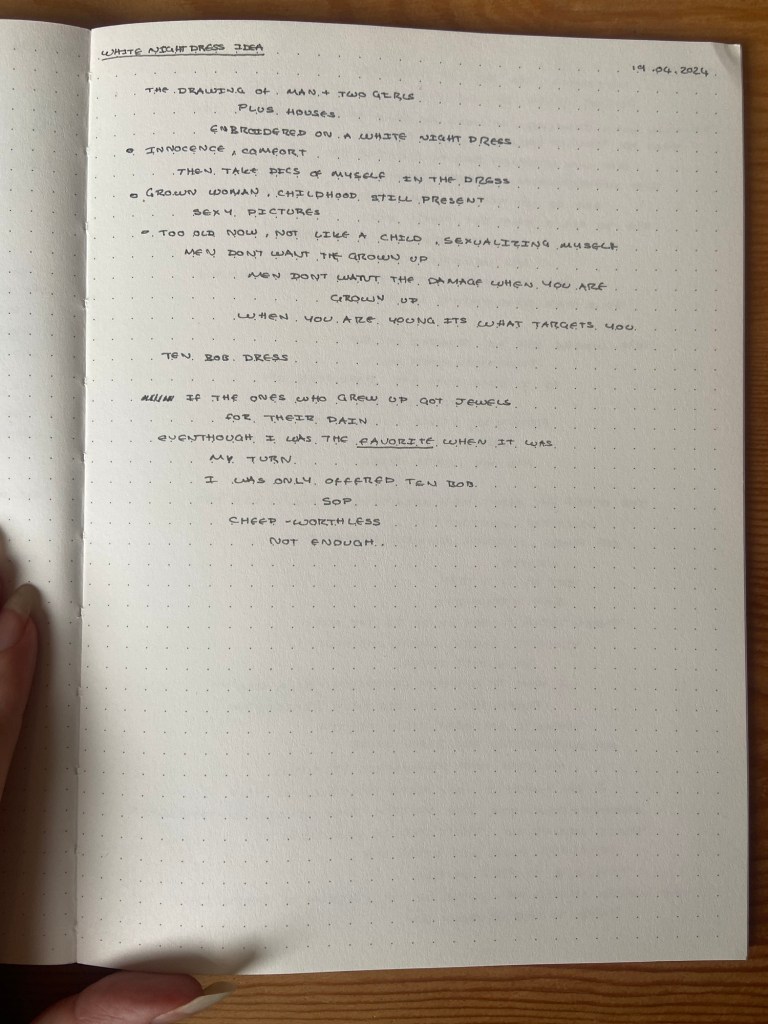 WHITE NIGHTDRESS IDEA
19.04.2024
THE DRAWING OF MAN + TWO GIRLS
PLUS HOUSES.
EMBROIDERED ON A WHITE NIGHT DRESS
• INNOCENCE, COMFORT
THEN TAKE PICS OF MYSELF IN THE DRESS
• GROWN WOMAN, CHILDHOOD STILL PRESENT
SEXY PICTURES
• TOO OLD NOW, NOT LIKE A CHILD, SEXUALIZING MYSELF
MEN DONT WANT THE GROWN UP
MEN DONT WATUT THE DAMAGE WHEN YOU ARE
GROWN UP
WHEN YOU ARE YOUNG ITS WHAT TARGETS YOU.
TEN BOB DRESS
IF THE ONES WHO GREW UP GOT JEWELS
FOR THEIR PAIN
EVENTHOUGH I WAS THE FAVORITE WHEN IT WAS
MY TURN.
I WAS ONLY OFFERED TEN BOB.
SOP.
CHEEP - WORTHLESS
NOT ENOUGH..